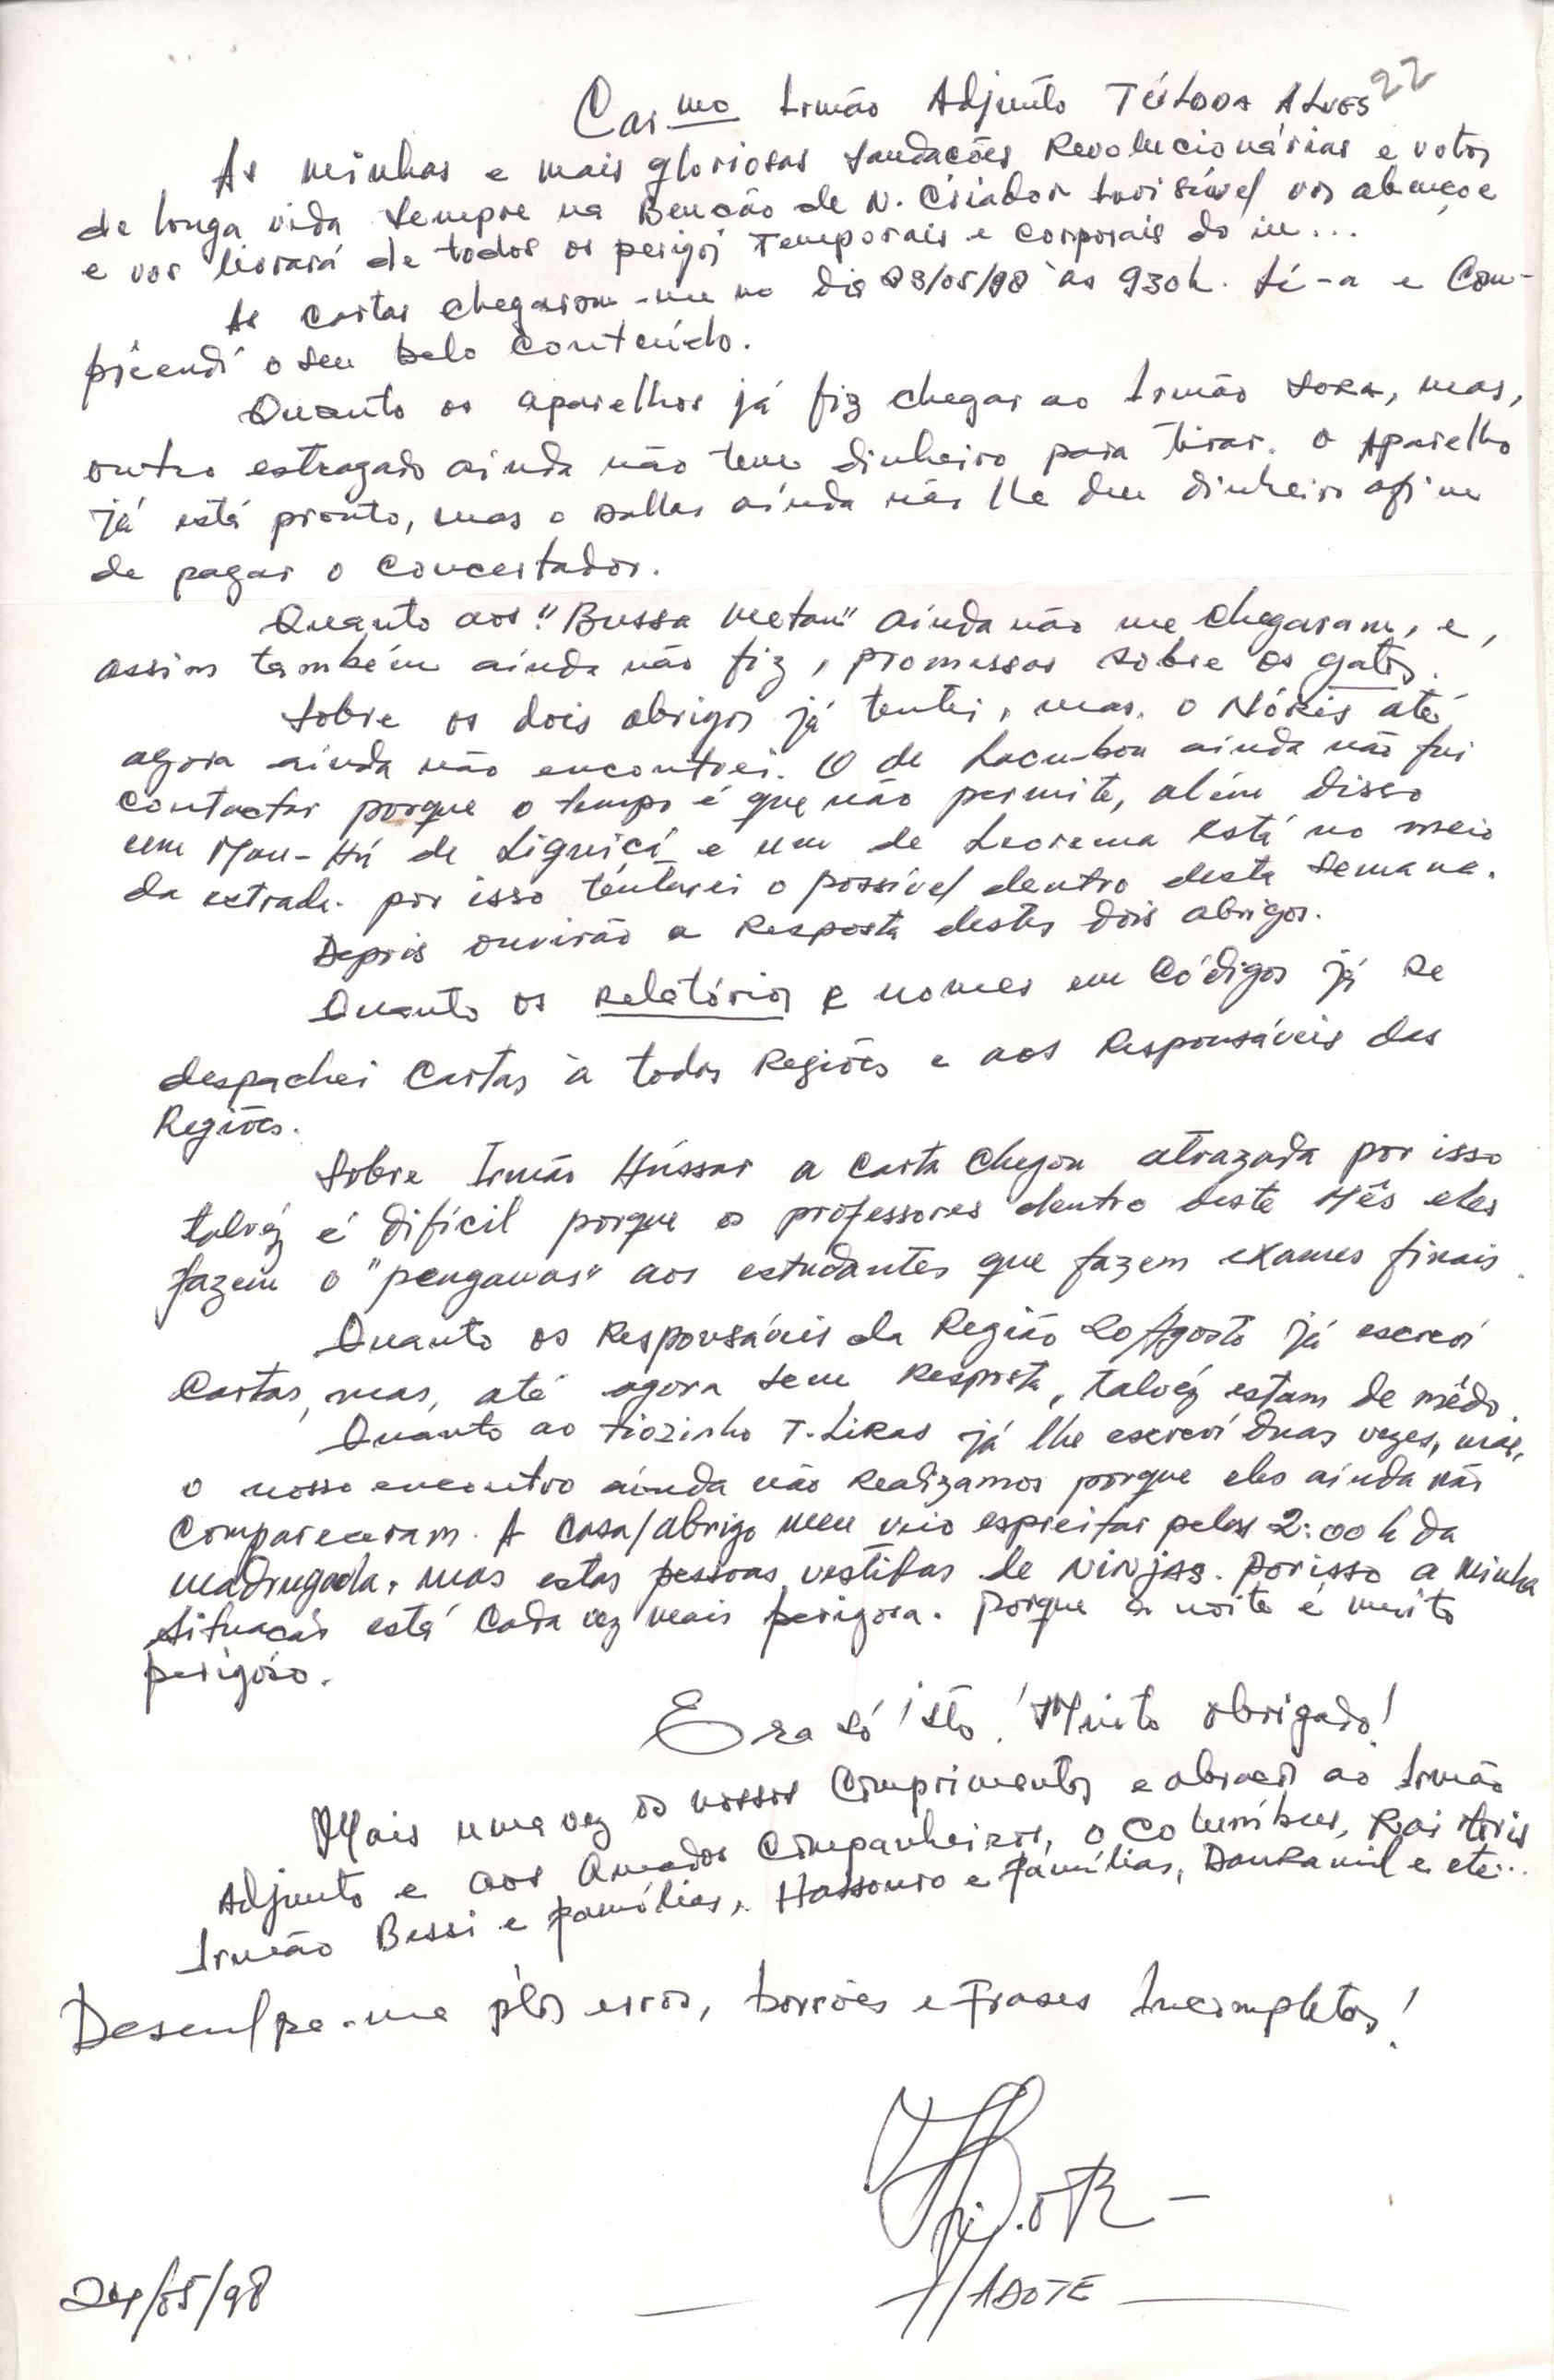 22
Car mo Irmão Adjunto TÚLODA ALVES
As minhas e mais gloriosas saudacões Revolucionárias e votos
de longa vida sempre na Bencão de N. Criador Invisível vos abençoe
e vos livrará de todos os perigos Temporais e corporais do in...
As cartas chegaram-me no dia 23/05/98 às 930h. Lí-a e Com-
préendí o seu belo conteúdo.
Quanto os aparelhos já fiz chegar ao Irmão SORA, mas,
outro estragado ainda não tem dinheiro para tirar. O Aparelho
já está pronto, mas o Dallas ainda não lhe deu dinheiro afim
de pagar o concertador.
Quanto aos "Bussa Metan" ainda não me chegaram, e,
assim também ainda não fiz, promessas sobre os gatos.
Sobre os dois abrigos já tentei, mas, o Nóris até
agora ainda não encontrei. O de Lacu-bou ainda não fui
contactar porque o tempo é que não permite, além disso
um Mau-Hú de Liquiçá e um de Leorema está no meio
da estrada. por isso tentarei o possível dentro desta semana.
Depois ouvirão a Resposta destes dois abrigos.
Quanto os Relatórios e nomes em Códigos já se
despachei Cartas à todos Regiões e aos Responsáveis das
Regiões.
Sobre Irmão Hússar a carta chegou atrazada por isso
talvéz é difícil porque os professores dentro deste Mês eles
fazem o "penganas" aos estudantes que fazem exames finais.
Quanto os Responsáveis da Região 20 Agosto já escreví
Cartas, mas, até agora sem Resposta, talvéz estam de mêdo.
Quanto ao tiozinho T. Likas já lhe escreví duas vezes, mas,
o nosso encontro ainda não Realizamos porque eles ainda não
compareceram. A casa/abrigo meu veio espreitar pelas 2:00 h da
madrugada, mas estas pessoas vestidas de NINJAS. Por isso a minha
situação está cada vez mais perigosa. Porque a noite é muito
perigoso.
Era só isto! Muito obrigado!
Mais uma vez os nossos Comprimentos e abraços ao Irmão
Adjunto e aos Amados Companheiros, o Columbus, Rai
Irmão Bessi e famílias, Hassouro e famílias, DauKamil e etc...
Desculpe-me p'los erros, borrões e Frases Incompletas!
ADOTE
24/05/98